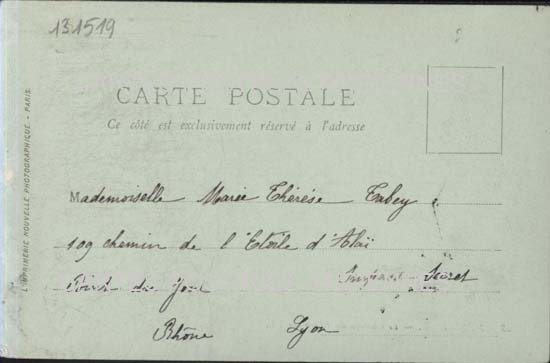 131519
CARTE POSTALE
Ce côté est exclusivement réservé à l'adresse
Mademoiselle Marie Thérèse
109 chemin de l'Etoile d'Alaï
Point du Jour
Rhône Lyon
L'IMPRIMERIE NOUVELLE PHOTOGRAPHIQUE. - PARIS.